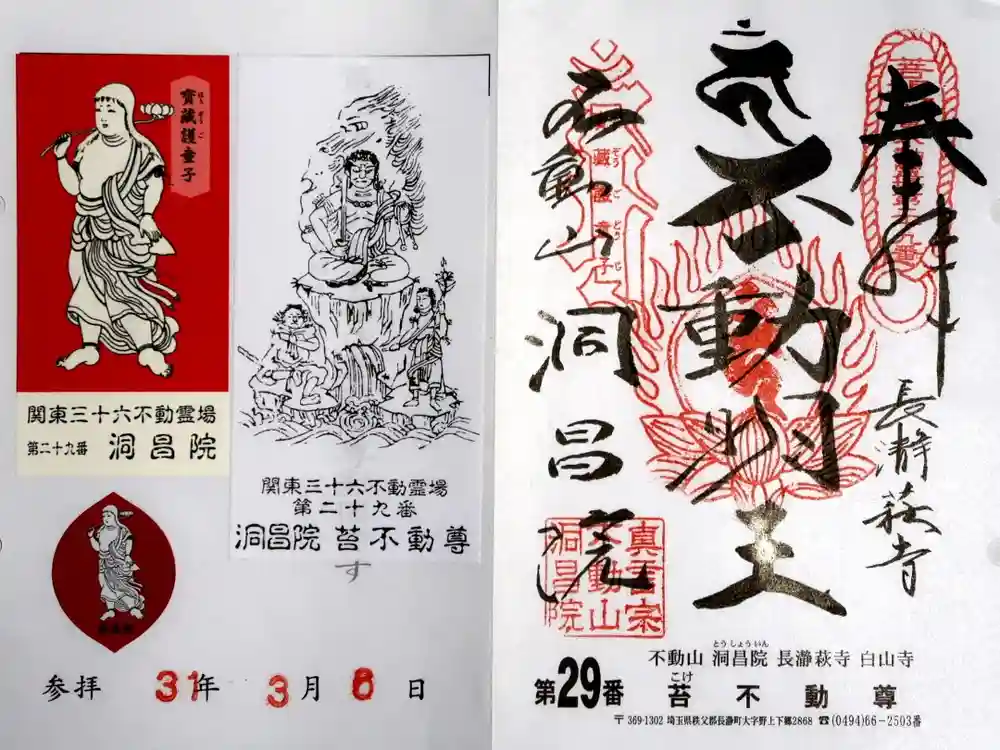 寳藏護童子
ほうぞうご
関東三十六不動霊場
第二十九番 洞昌院
関東三十六不動霊場
第二十九番
洞昌院 苔不動尊
す
参拝 31年 3月 6日
奉拝
長瀞萩寺
不動明王
不動山
洞昌院
藏護童子
ぞうごどうじ
真言宗
不動山
洞昌院
とうしょういん
不動山 洞昌院 長瀞萩寺 白山寺
こけ
第29番 苔不動尊
〒369-1302 埼玉県秩父郡長瀞町大字野上下郷2868 ☎(0494)66-2503番